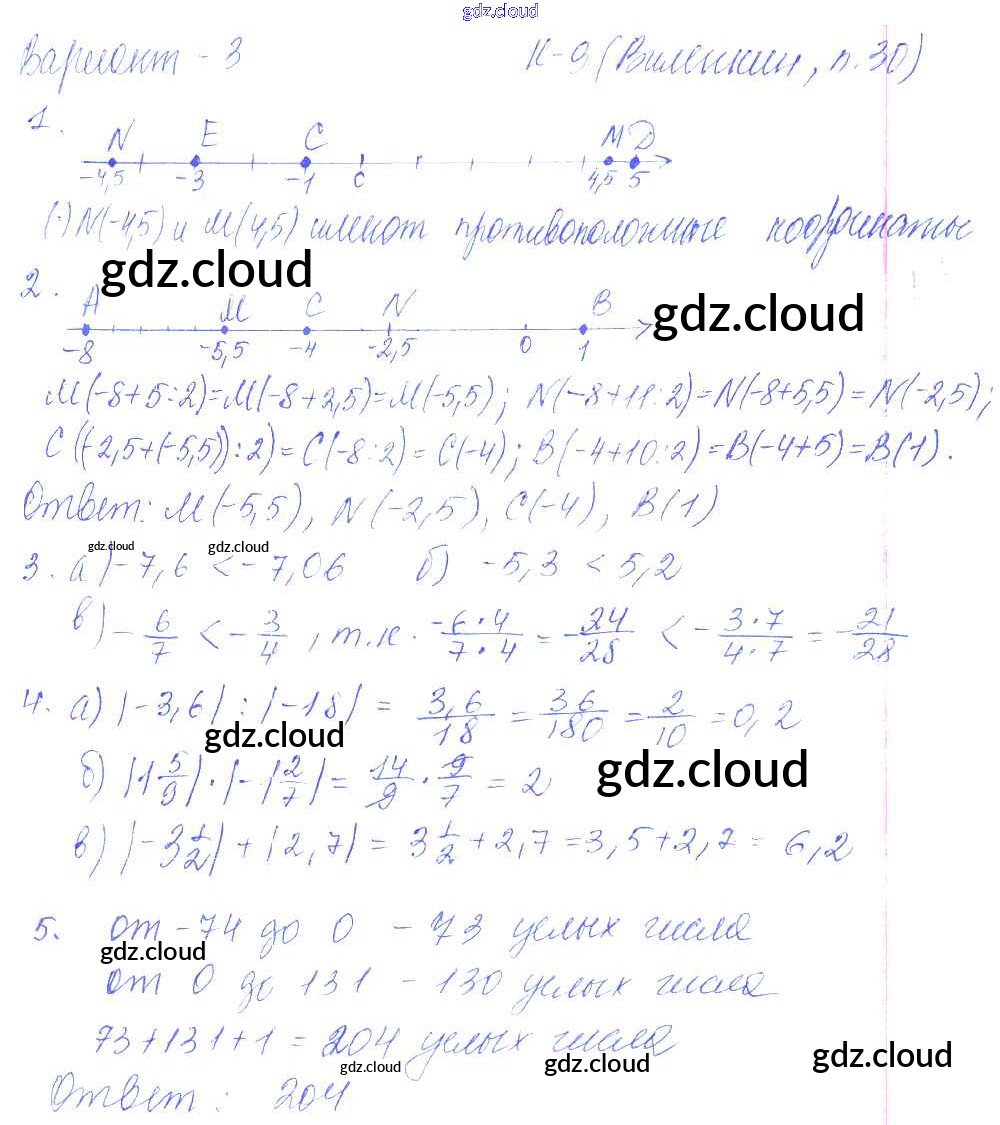 gdz.cloud
Вариант - 3 К-9 (Виленкин, п.30)
1.
N E C M D
-4,5 -3 -1 0 4,5 5
(·) N(-4,5) и M(4,5) имеют противоположные координаты
gdz.cloud
2.
A M C N B
gdz.cloud
-8 -5,5 -4 -2,5 0 1
M(-8+5:2)=M(-8+2,5)=M(-5,5); N(-8+11:2)=N(-8+5,5)=N(-2,5);
C((-2,5+(-5,5)):2)=C(-8:2)=C(-4); B(-4+10:2)=B(-4+5)=B(1).
Ответ: M(-5,5), N(-2,5), C(-4), B(1)
gdz.cloud gdz.cloud
3. а) -7,6 < -7,06 б) -5,3 < 5,2
в) -6/7 < -3/4, т.к. -6·4/7·4 = -24/28 < -3·7/4·7 = -21/28
4. а) |-3,6| : |-18| = 3,6/18 = 36/180 = 2/10 = 0,2
gdz.cloud
б) |1 5/9| · |-1 2/7| = 14/9 · 9/7 = 2
gdz.cloud
в) |-3 1/2| + |2,7| = 3 1/2 + 2,7 = 3,5 + 2,7 = 6,2
5. от -74 до 0 - 73 целых числа
gdz.cloud
от 0 до 131 - 130 целых числа
73+131+1 = 204 целых числа
gdz.cloud gdz.cloud gdz.cloud
Ответ: 204